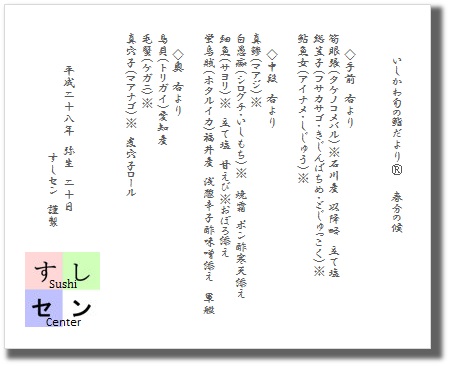 いしかわ旬の鮨だより® 春分の候
◇手前 右より
筍眼張(タケノコメバル)※石川産 以降略 立て塩
鎧笠子(フサカサゴ・きじんばちめ・どじゅっこく)※
鮎魚女(アイナメ・しじゅう)※
◇中段 右より
真鯵(マアジ)※
白愚痴(シログチ・いしもち)※ 焼霜 ポン酢寒天添え
細魚(サヨリ)※ 立て塩 甘えび※おぼろ添え
蛍烏賊(ホタルイカ)福井産 浅葱辛子酢味噌添え 軍艦
◇奥 右より
鳥貝(トリガイ)愛知産
毛蟹(ケガニ)※
真穴子(マアナゴ)※ 煮穴子ロール
平成二十八年 弥生 二十日
すしセン 謹製
すし
Sushi
セン
Center